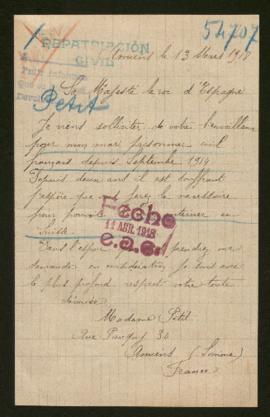 54707
REPATRIACIÓN
CIVIL
Amiens le 13 Mars 1918
Sa Majesté le roi d'Espagne
Petit
Je viens solliciter de votre bienveillance
pour mon mari prisonnier civil
français depuis Septembre 1914
Depuis deux ans il est souffrant
j'espère que vous ferez le nécessaire
pour interner en
Suisse.
Fecho
11 ABR. 1918
Dans l'espoir que prendrez ma
demande en considération, je suis avec
le plus profond respect votre toute
dévouée
Madame Petit
Rue 34
Amiens (Somme)
France